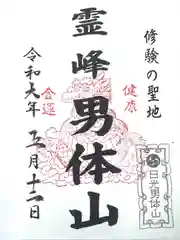 修験の聖地
霊峰男体山
健康
金運
令和六年五月十二日
日光男体山